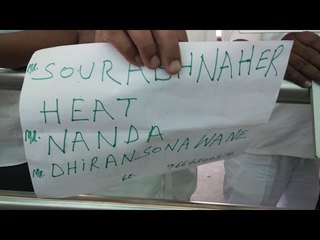 MR. SOURABH NAHER
HEAT
MR. NANDA
MR. DHIRAN SONAWANE